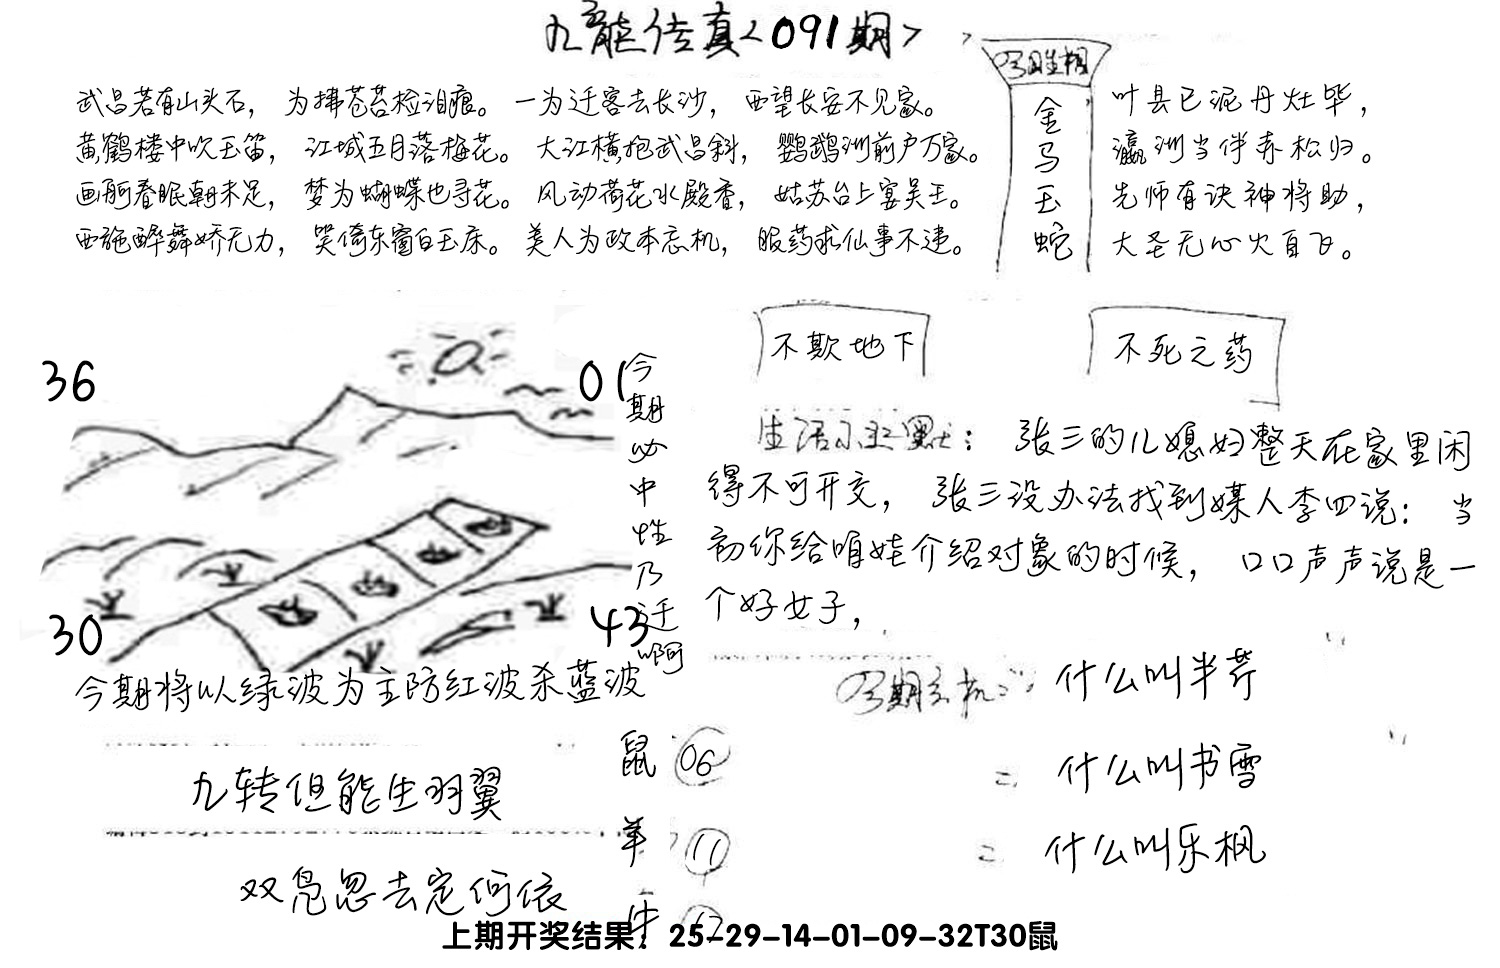 九龙传真<091期>
武昌若有山头石，为拂苍苔检泪痕。一为迁客去长沙，西望长安不见家。
黄鹤楼中吹玉笛，江城五月落梅花。大江横抱武昌斜，鹦鹉洲前户万家。
画舸春眠朝未足，梦为蝴蝶也寻花。风动荷花水殿香，姑苏台上宴吴王。
西施醉舞娇无力，笑倚东窗白玉床。美人为政本忘机，服药求仙事不违。
金
马
玉
蛇
叶县已泥丹灶毕，
瀛洲当伴赤松归。
先师有诀神将助，
大圣无心火自飞。
36
01
30
43
今期必中性乃迁啊
今期将以绿波为主防红波杀蓝波
不欺地下
不死之药
生活小幽默：张三的儿媳妇整天在家里闲
得不可开交，张三没办法找到媒人李四说：当
初你给咱娃介绍对象的时候，口口声声说是一
个好女子，
今期玄机：什么叫半芹
什么叫书雪
什么叫乐枫
九转但能生羽翼
双凫忽去定何依
鼠 06
羊 11
牛
上期开奖结果：25-29-14-01-09-32T30鼠